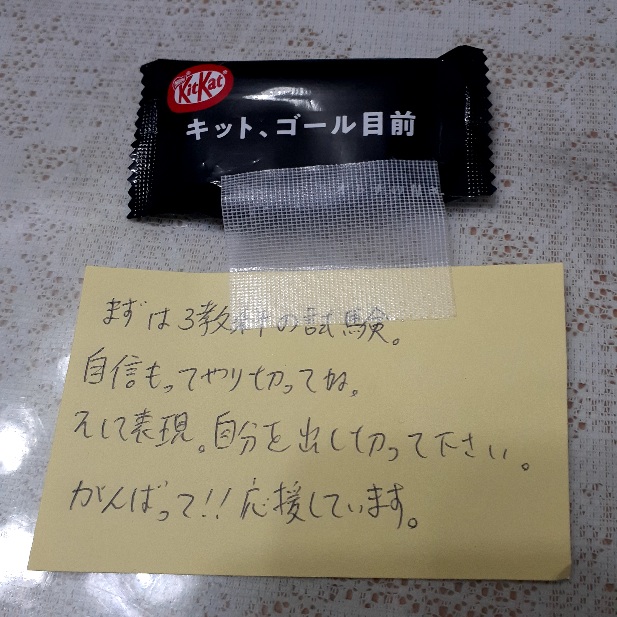 KitKat
キット、ゴール目前
まずは3教科の試験。
自信もってやり切ってね。
そして表現。自分を出し切って下さい。
がんばって!!応援しています。